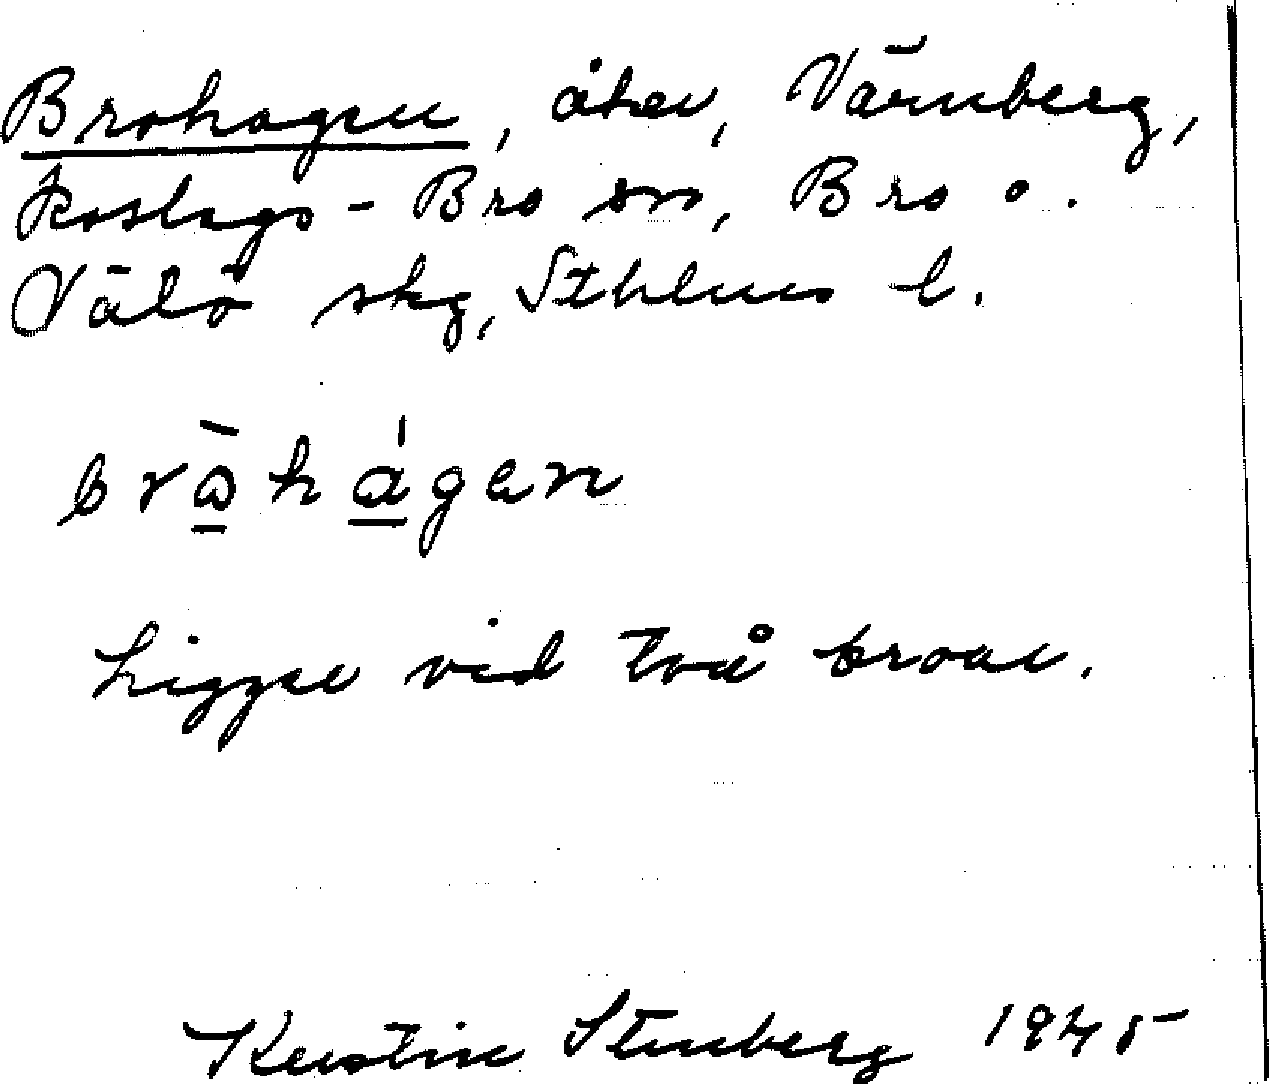 Brohagen, åker, Värnberg,
Roslags-Bro sn, Bro o.
Vätö skg, Sthlms l.
bròhágen
Ligger vid två broar.
Kerstin Stenberg 1945